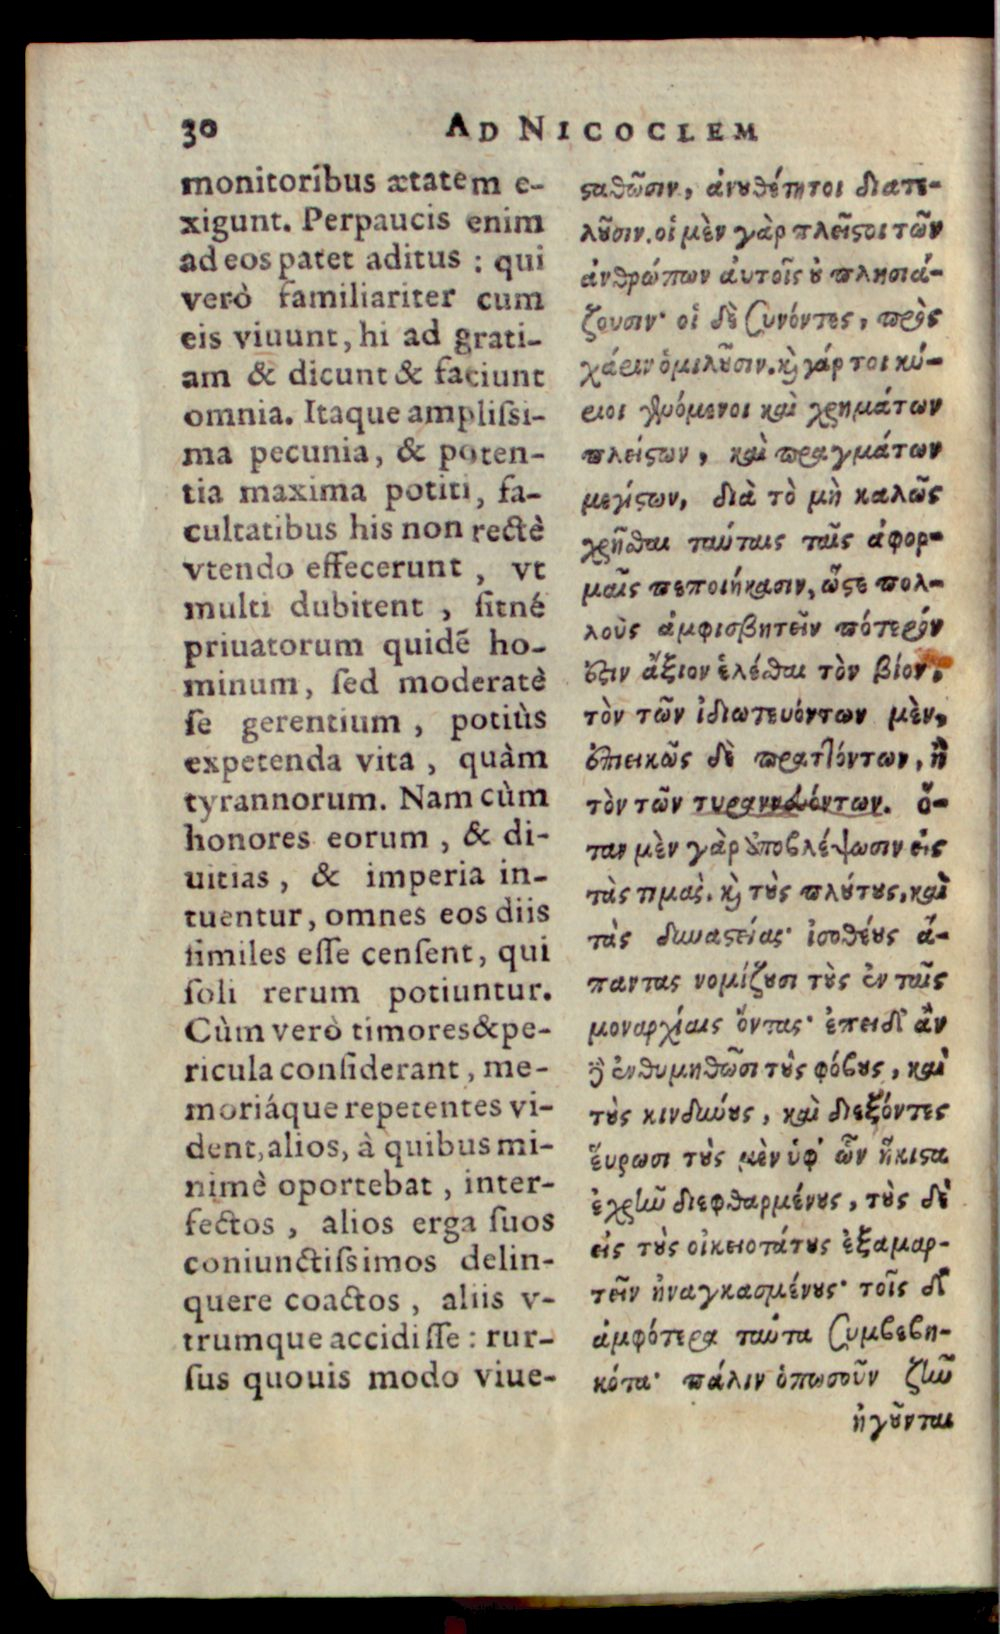 30 AD NICOCLEM
monitoribus ætatem e-
xigunt. Perpaucis enim
ad eos patet aditus : qui
verò familiariter cum
eis viuunt, hi ad grati-
am & dicunt & faciunt
omnia. Itaque ampliſsi-
ma pecunia, & poten-
tia maxima potiti, fa-
cultatibus his non rectè
vtendo effecerunt, vt
multi dubitent, ſitné
priuatorum quidẽ ho-
minum, ſed moderatè
ſe gerentium, potiùs
expetenda vita, quàm
tyrannorum. Nam cùm
honores eorum, & di-
uitias, & imperia in-
tuentur, omnes eos diis
ſimiles eſſe cenſent, qui
ſoli rerum potiuntur.
Cùm verò timores & pe-
ricula conſiderant, me-
moriáque repetentes vi-
dent, alios, à quibus mi-
nimè oportebat, inter-
fectos, alios erga ſuos
coniunctiſsimos delin-
quere coactos, aliis v-
trumque accidiſſe : rur-
ſus quouis modo viue-
ϛαθῶσιν, ἀνȣθέτητοι διατε-
λοῦσιν. οἱ μὲν γὰρ πλεῖϛοι τῶν
ἀνθρώπων αὐτοῖς ȣ̓ πλησιά-
ζουσιν· οἱ δὲ συνόντες, πρὸς
χάριν ὁμιλοῦσιν. καὶ γάρ τοι κύ-
ριοι γενόμενοι καὶ χρημάτων
πλείϛων, καὶ πραγμάτων
μεγίϛων, διὰ τὸ μὴ καλῶς
χρῆσθαι ταύταις ταῖς ἀφορ-
μαῖς πεποιήκασιν, ὥϛε πολ-
λοὺς ἀμφισβητεῖν πότερόν
ἐϛιν ἄξιον ἑλέσθαι τὸν βίον,
τὸν τῶν ἰδιωτευόντων μὲν,
ἐπιεικῶς δὲ πραττόντων, ἢ
τὸν τῶν τυραννευόντων. ὅ-
ταν μὲν γὰρ ἀποβλέψωσιν εἰς
τὰς τιμὰς, καὶ τοὺς πλούτους, καὶ
τὰς δυναϛείας· ἰσοθέους ἅ-
παντας νομίζουσι τοὺς ἐν ταῖς
μοναρχίαις ὄντας· ἐπειδ᾽ ἂν
δὲ ἐνθυμηθῶσι τοὺς φόβους, καὶ
τοὺς κινδύνους, καὶ διεξιόντες
εὕρωσι τοὺς μὲν ὑφ᾽ ὧν ἥκιϛα
ἐχρῆν διεφθαρμένους, τοὺς δὲ
εἰς τοὺς οἰκειοτάτους ἐξαμαρ-
τεῖν ἠναγκασμένους· τοῖς δ᾽
ἀμφότερα ταῦτα συμβεβη-
κότα· πάλιν ὁπωσοῦν ζῆν
ἡγοῦνται